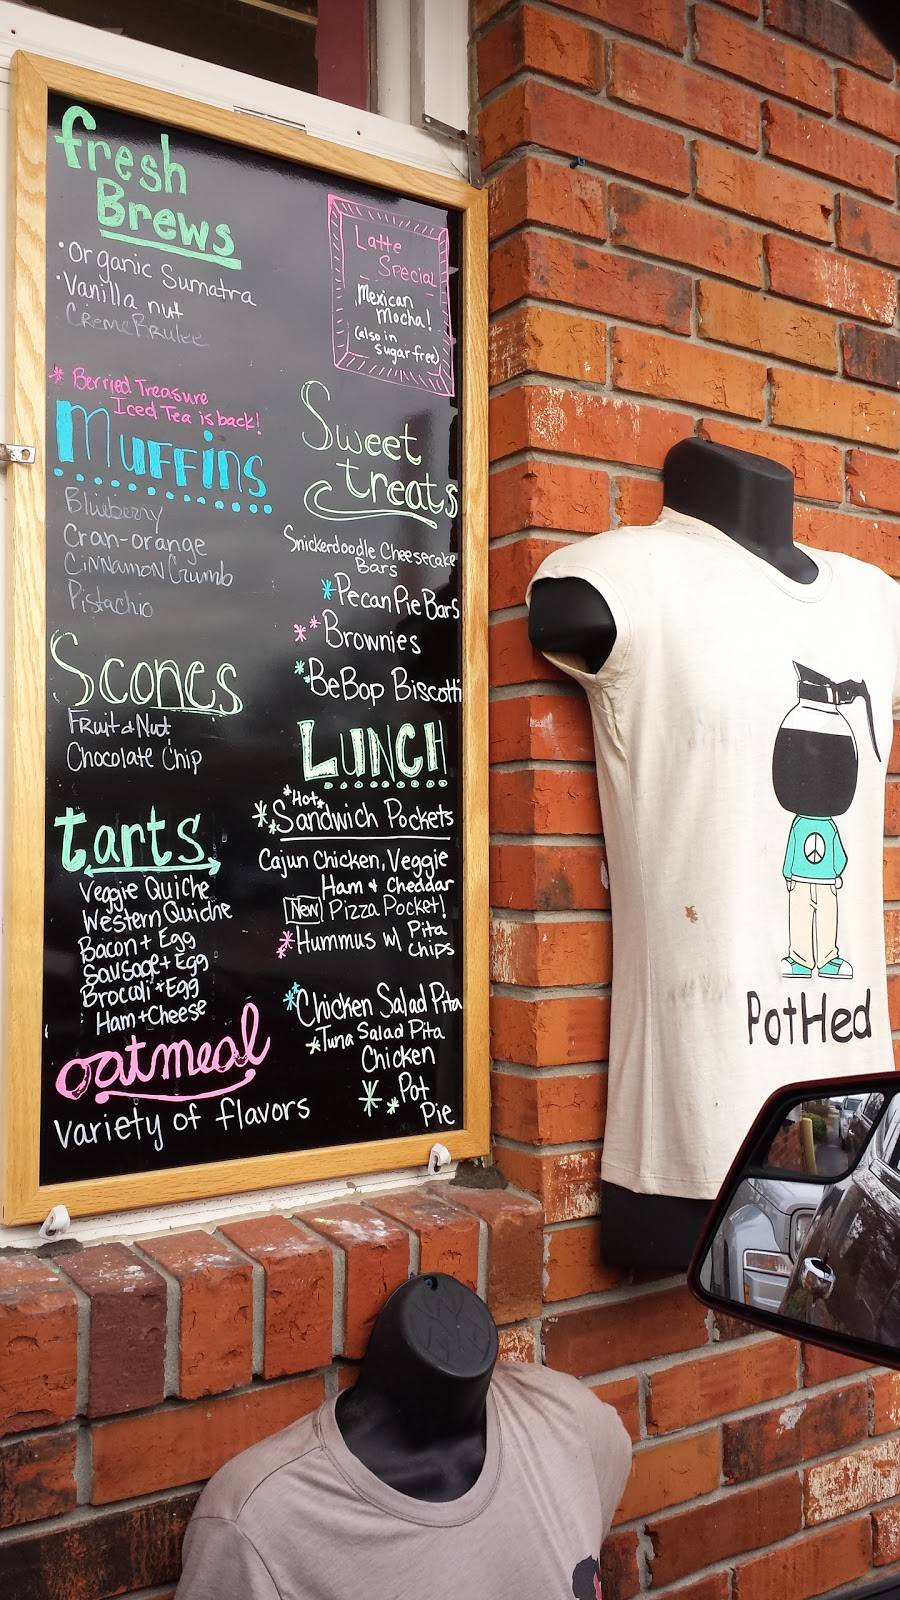 fresh
Brews
• Organic Sumatra
• Vanilla nut
Creme Brulee
* Berried Treasure
Iced Tea is back!
Muffins
Blueberry
Cran-orange
Cinnamon Crumb
Pistachio
Scones
Fruit & Nut
Chocolate Chip
tarts
Veggie Quiche
Western Quiche
Bacon + Egg
Sausage + Egg
Broccoli + Egg
Ham + Cheese
oatmeal
variety of flavors
Latte
Special
Mexican
Mocha!
(also in
sugar free)
Sweet
treats
Snickerdoodle Cheesecake
Bars
* Pecan Pie Bars
** Brownies
* BeBop Biscotti
LUNCH
* *Hot*
* Sandwich Pockets
Cajun Chicken, Veggie
Ham & Cheddar
New Pizza Pocket!
* Hummus w/ Pita
* Chips
* Chicken Salad Pita
* Tuna Salad Pita
Chicken
* * Pot
Pie
PotHed